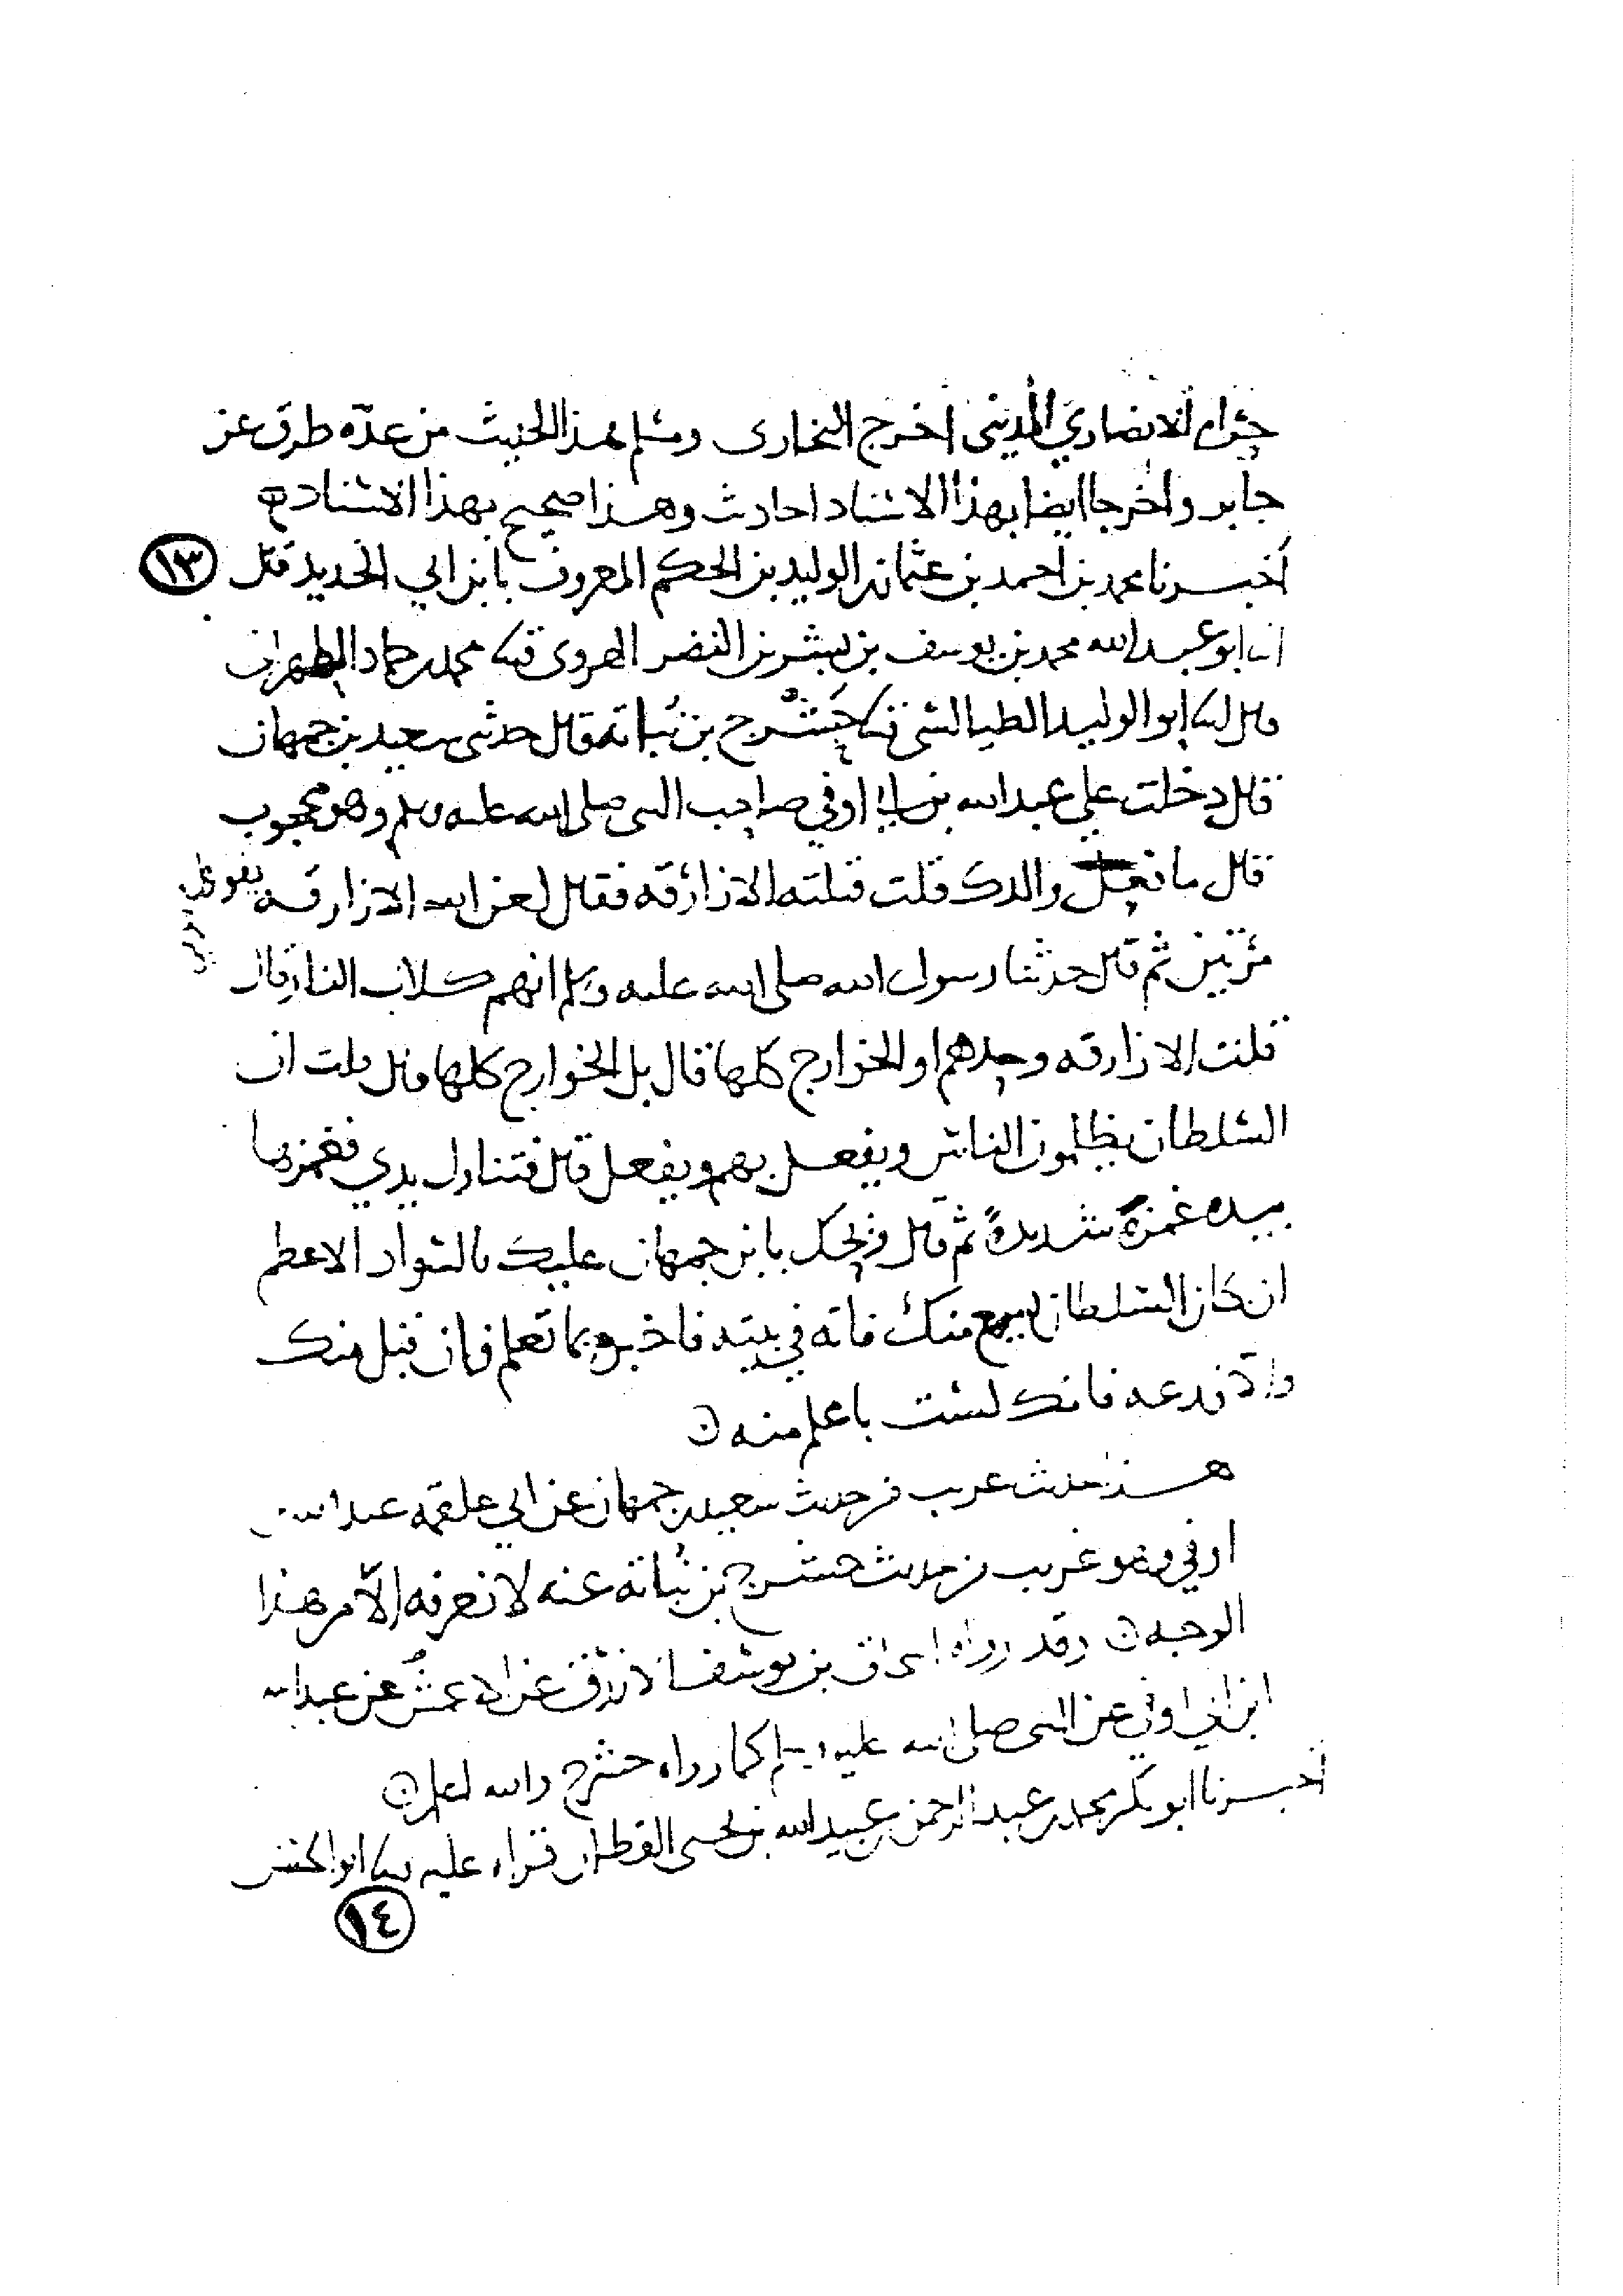 حرام الانصاري المديني اخرج البخاري ومسلم هذا الحديث من عدة طرق عن
جابر واخرجا ايضا بهذا الاسناد احاديث وهذا صحيح بهذا الاسناد
أخبرنا محمد بن احمد بن عثمان بن الوليد بن الحكم المعروف بابن ابي الحديد قال ١٣
ابو عبد الله محمد بن يوسف بن بشر بن النضر الهروي ثنا محمد بن حماد الطهراني
قال ثنا ابو الوليد الطيالسي ثنا حَشْرج بن نُباتة قال حدثني سعيد بن جمهان
قال دخلت علي عبد الله بن ابي اوفي صاحب النبي صلى الله عليه وسلم وهو محجوب
قال ما فعل والدك قلت قتلته الازارقه فقال لعن الله الازارقه يقولها
مرتين ثم قال حدثنا رسول الله صلى الله عليه وسلم انهم كلاب النار قال
قلت الازارقه وحدهم او الخوارج كلها قال بل الخوارج كلها قال قلت ان
السلطان يظلمون الناس ويفعل بهم ويفعل قال فتناول يدي فغمزها
بيده غمزة شديدةً ثم قال ويحك يا بن جمهان عليك بالسواد الاعظم
ان كان السلطان يسمع منك فاته في بيته فاخبره بما تعلم فان قبل منك
والا فدعه فانك لست باعلم منه ن
هذا حديث غريب من حديث سعيد بن جمهان عن ابي علقمه عبد الله بن
اوفي وهو غريب من حديث حشرج بن نُباتة عنه لا نعرفه الا من هذا
الوجه ن وقد رواه اسحاق بن يوسف الازرق عن الاعمش عن عبد الله
ابن ابي اوفي عن النبي صلى الله عليه وسلم كما رواه حشرج والله اعلم ن
أخبرنا ابو بكر محمد بن عبد الرحمن بن عبيد الله بن يحيى القطان قراه عليه ثنا ابو الحسن
١٤